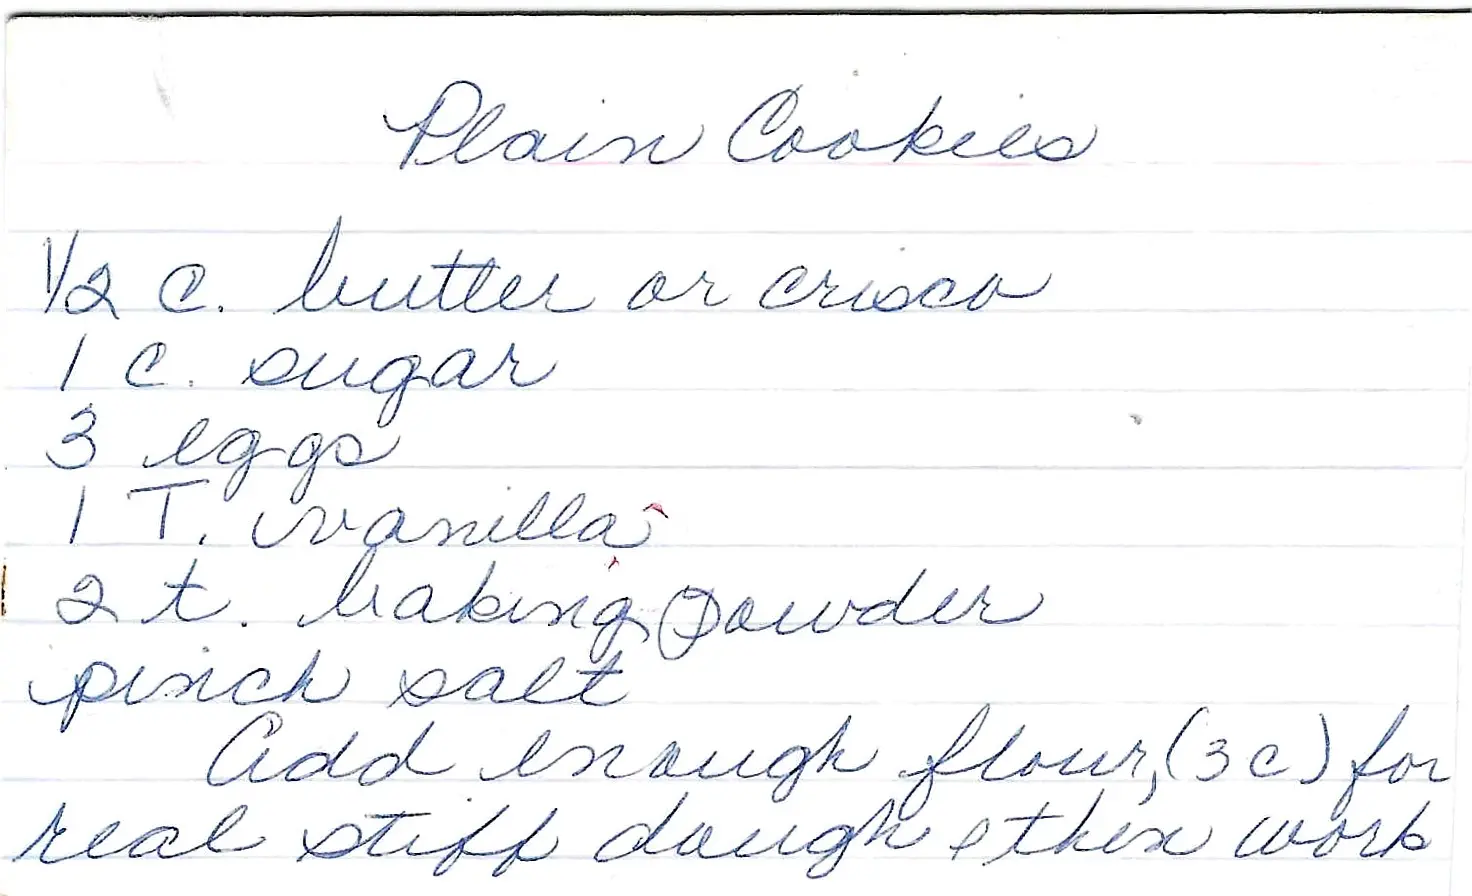 Plain Cookies
1/2 c. butter or crisco
1 c. sugar
3 eggs
1 T. vanilla
2 t. baking powder
pinch salt
Add enough flour, (3 c) for
real stiff dough & then work